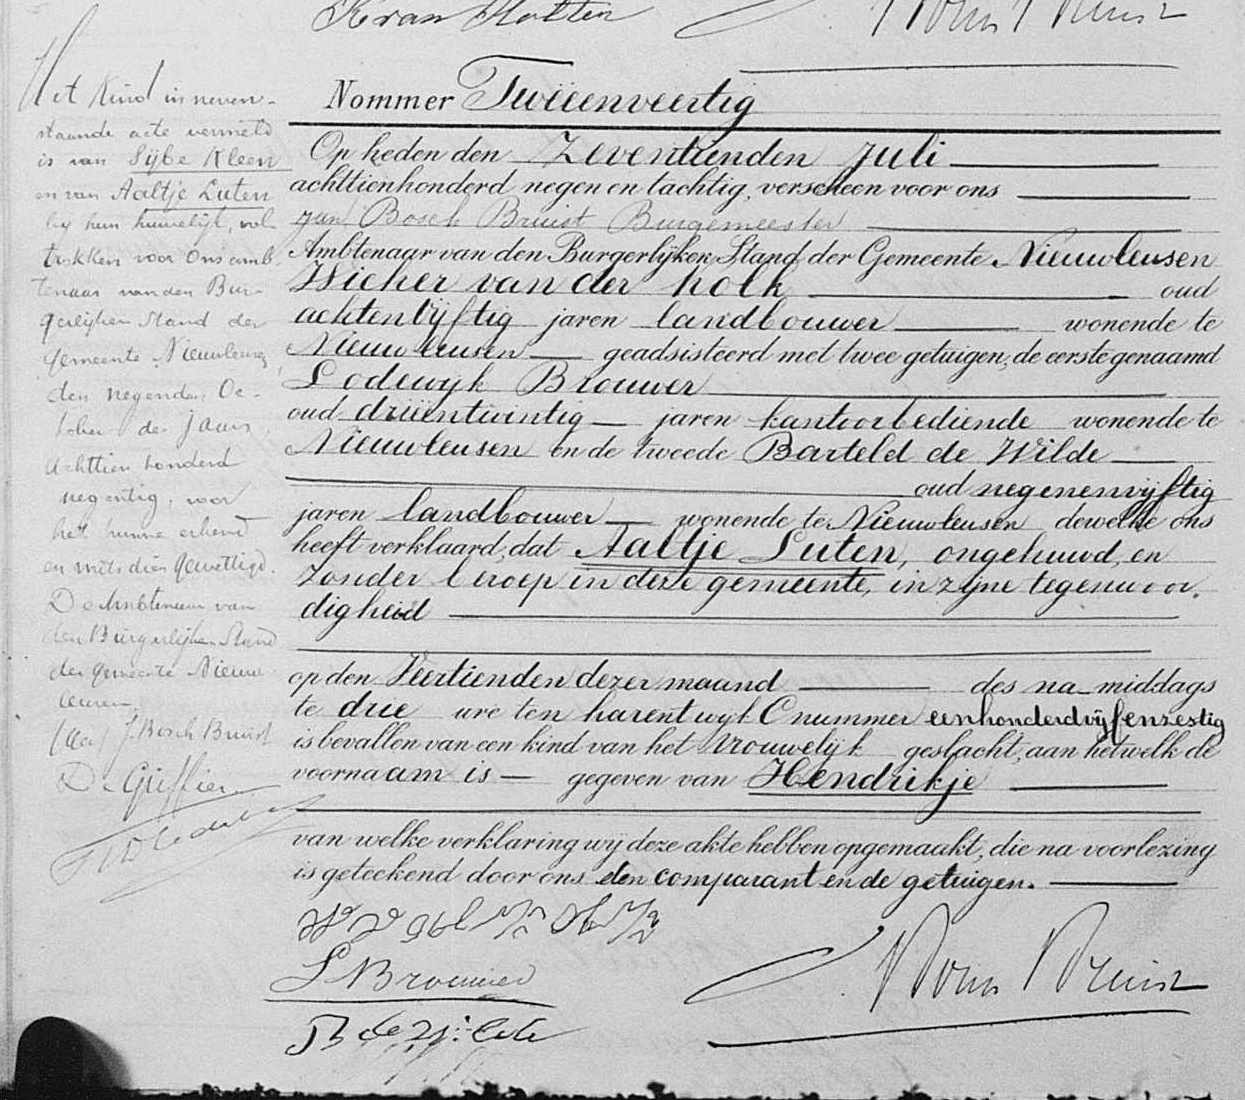 K van Holten
Nommer Twiëenveertig
Op heden den Zeventienden Juli
achttienhonderd negen en tachtig, verscheen voor ons
Jan Bosch Bruist Burgemeester
Ambtenaar van den Burgerlijken Stand der Gemeente Nieuwleusen
Wicher van der Kolk oud
achtenvijftig jaren landbouwer wonende te
Nieuwleusen geadsisteerd met twee getuigen, de eerste genaamd
Lodewijk Brouwer
oud drieëntwintig jaren kantoorbediende wonende te
Nieuwleusen en de tweede Barteld de Wilde
oud negenenvijftig
jaren landbouwer wonende te Nieuwleusen dewelke ons
heeft verklaard, dat Aaltje Luten, ongehuwd, en
zonder beroep in deze gemeente, in zijne tegenwoor-
digheid
op den Veertienden dezer maand des na middags
te drie ure ten harent wijk C nummer eenhonderdvijfenzestig
is bevallen van een kind van het Vrouwelijk geslacht, aan hetwelk de
voornaam is gegeven van Hendrikje
van welke verklaring wij deze akte hebben opgemaakt, die na voorlezing
is geteekend door ons den comparant en de getuigen.
L Brouwer
B de Wilde
J. Bosch Bruist
Het Kind in neven-
staande acte vermeld
is van Sijbe Kleen
en van Aaltje Luten
bij hun huwelijk, vol-
trokken voor Ons amb-
tenaar van den Bur-
gerlijken Stand der
gemeente Nieuwleusen,
den negenden Oc-
tober des jaars
Achttien honderd
negentig, voor
het hunne erkend
en mits dien gewettigd.
De Ambtenaar van
den Burgerlijken Stand
der gemeente Nieuw-
leusen,
J. Bosch Bruist
De Griffier